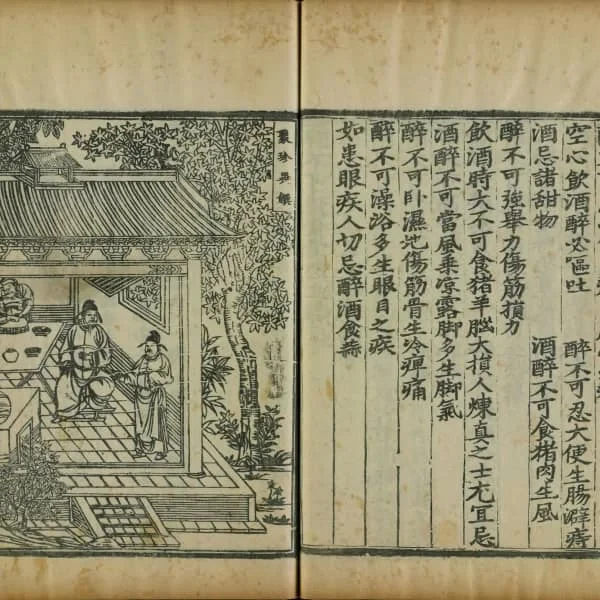 空心飲酒醉必嘔吐　醉不可忍大便生腸澼痔
酒忌諸甜物　酒醉不可食猪肉生風
醉不可強舉力傷筋損力
飲酒時大不可食猪羊腦大損人煉真之士尤宜忌
酒醉不可當風乘凉露脚多生脚氣
醉不可卧濕地傷筋骨生冷痺痛
醉不可澡浴多生眼目之疾
如患眼疾人切忌醉酒食蒜
聚珍異饌